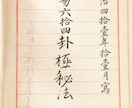 治四拾壹年拾壹月寫
易六拾四卦極秘法